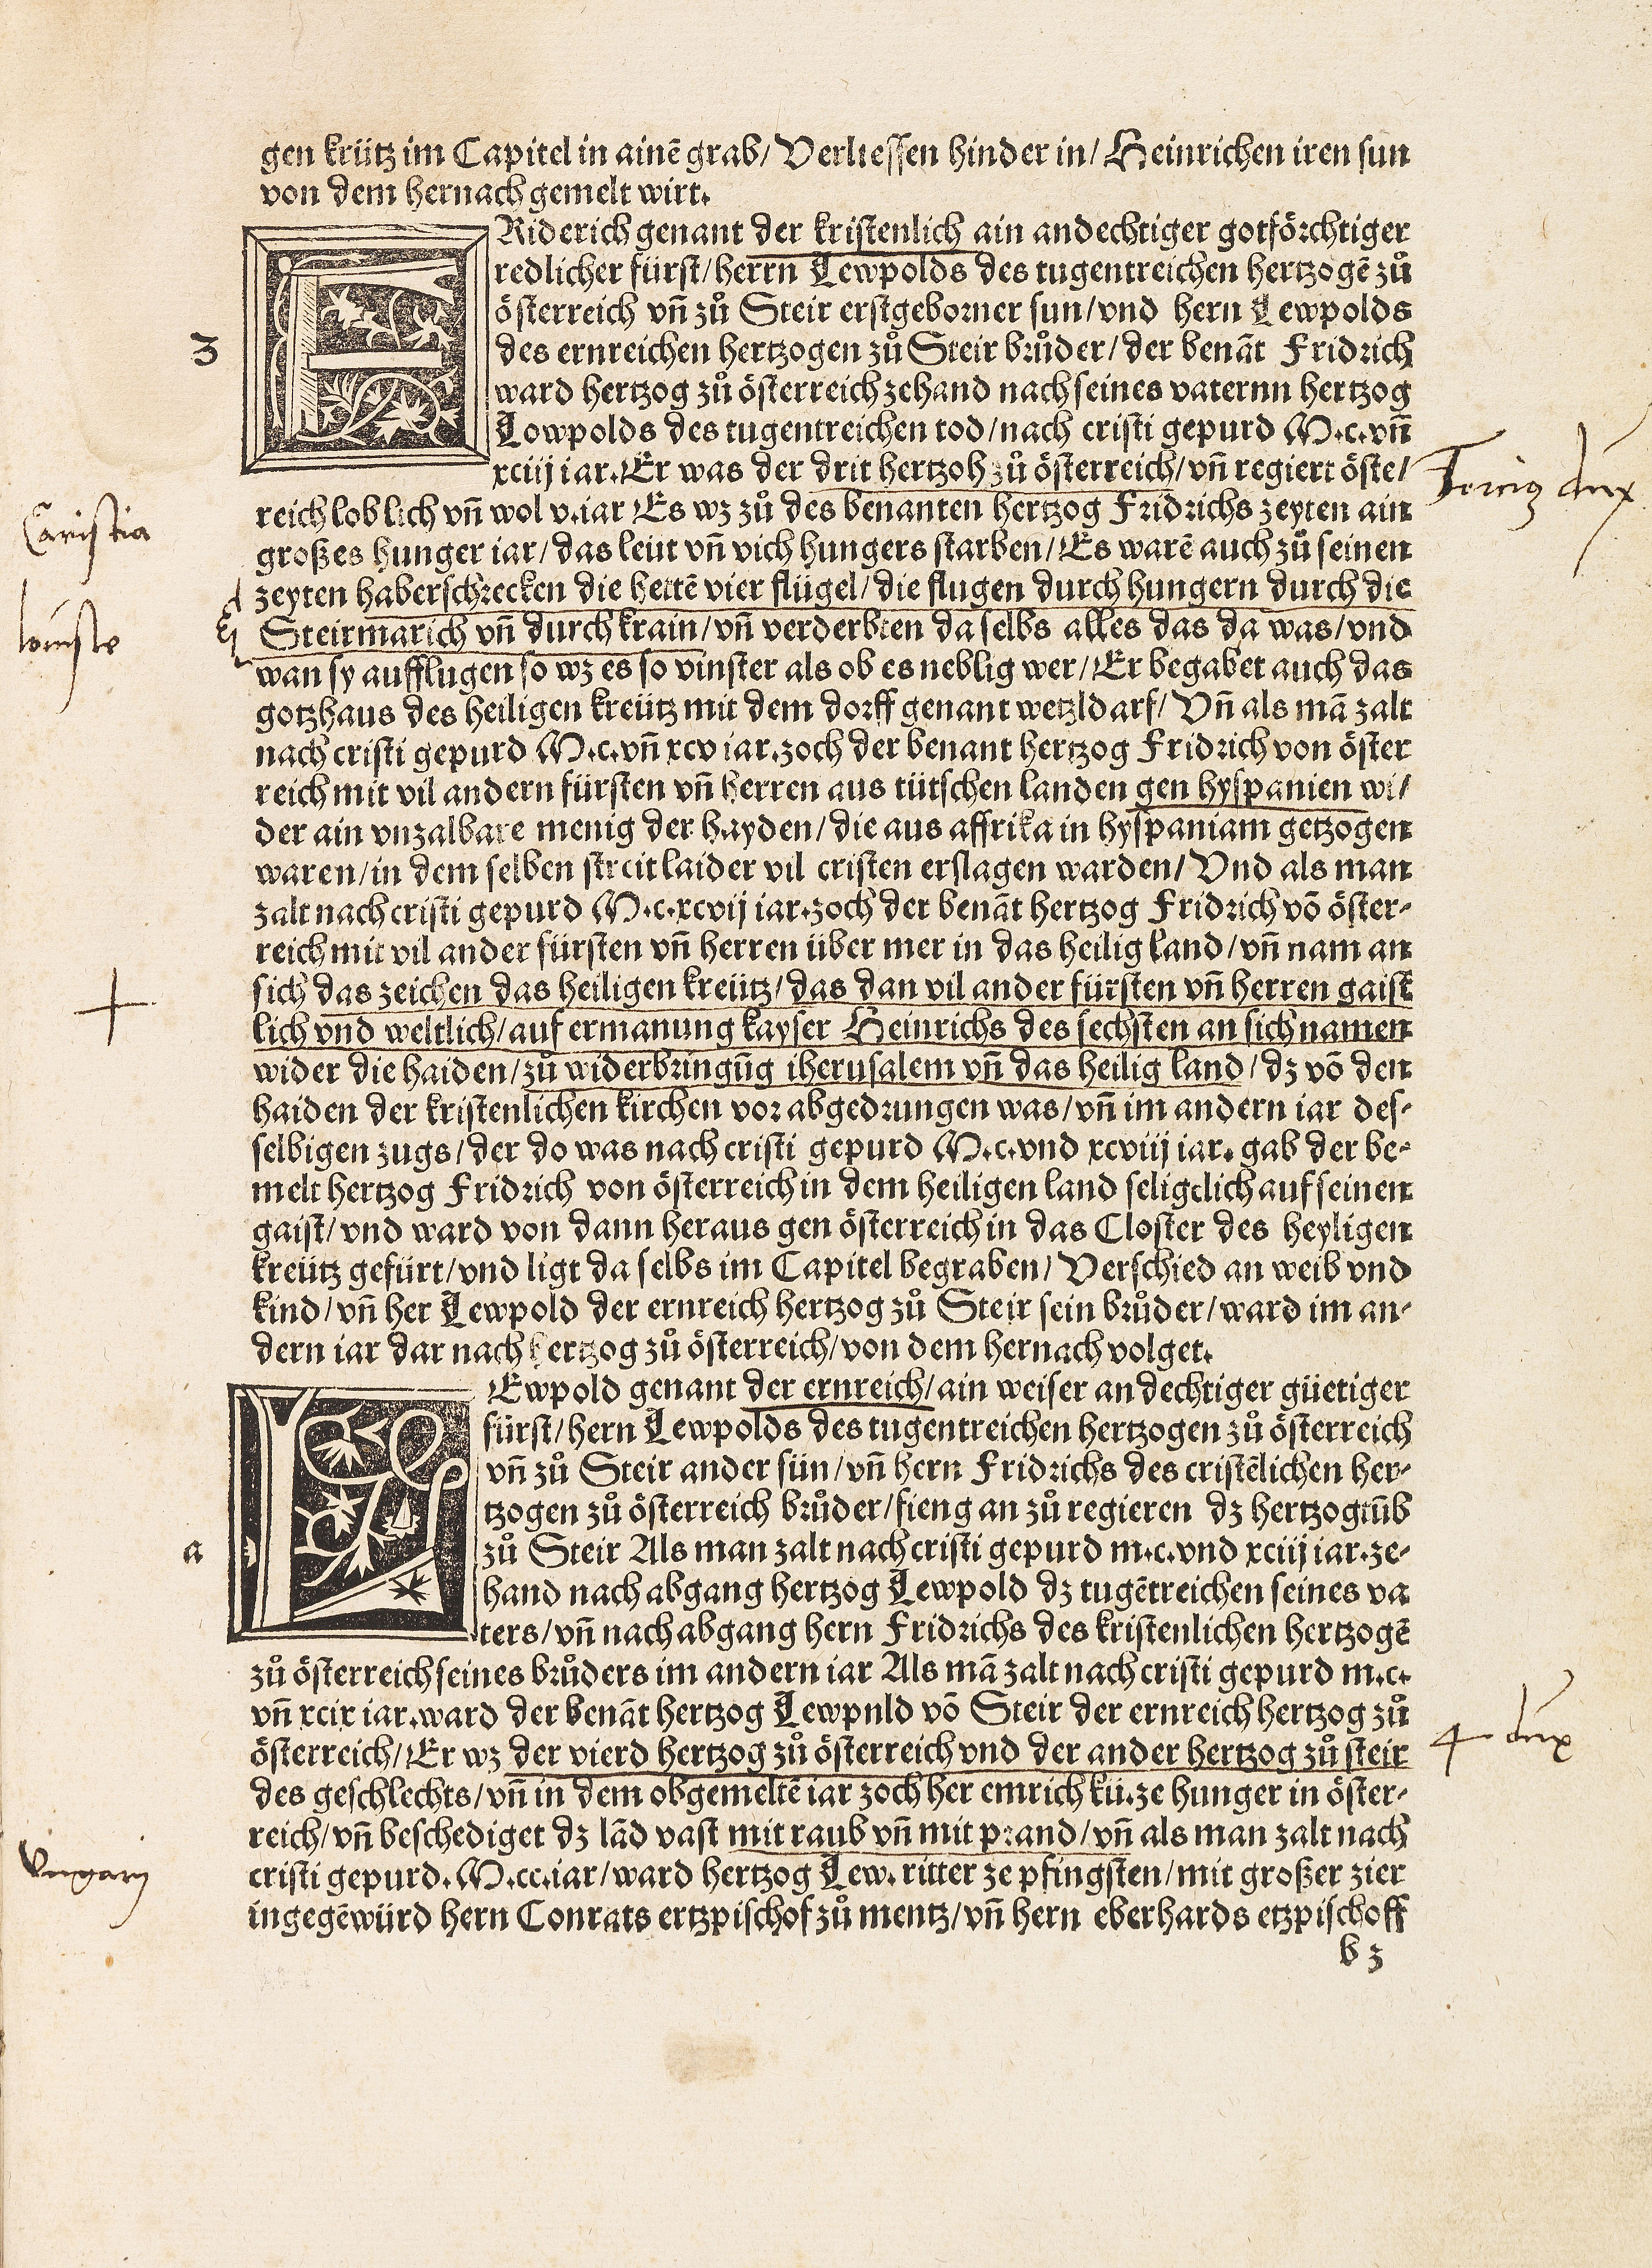 gen krütz im Capitel in ainē grab/ Verliessen hinder in/ Heinrichen iren sun
von dem hernach gemelt wirt.
FRiderich genant der kristenlich ain andechtiger gotförchtiger
redlicher fürst/ herrn Lewpolds des tugentreichen hertzogē zů
österreich vñ zů Steir erstgeborner sun/ vnd hern Lewpolds
3
des ernreichen hertzogen zů Steir brůder/ der benāt Fridrich
ward hertzog zů österreich zehand nach seines vaternn hertzog
Lowpolds des tugentreichen tod/ nach cristi gepurd M.c.vñ
xciiij iar. Er was der drit hertzoh zů österreich/ vñ regiert öste/
Tercius dux
reich loblich vñ wol v.iar Es wz zů des benanten hertzog Fridrichs zeyten ain
Caristia
großes hunger iar/ das leüt vñ vich hungers starben/ Es warē auch zů seinen
zeyten haberschrecken die hettē vier flügel/ die flugen durch hungern durch die
locuste
Steirmarich vñ durch krain/ vñ verderbten da selbs alles das da was/ vnd
wan sy aufflugen so wz es so vinster als ob es neblig wer/ Er begabet auch das
gotzhaus des heiligen kreütz mit dem dorff genant wetzldarf/ Vñ als mā zalt
nach cristi gepurd M.c.vñ xcv iar. zoch der benant hertzog Fridrich von öster
reich mit vil andern fürsten vñ herren aus tütschen landen gen hyspanien wi/
der ain vnzalbare menig der hayden/ die aus affrika in hyspaniam getzogen
waren/ in dem selben streit laider vil cristen erslagen warden/ Vnd als man
zalt nach cristi gepurd M.c.xcvij iar. zoch der benāt hertzog Fridrich vō öster-
reich mit vil ander fürsten vñ herren über mer in das heilig land/ vñ nam an
sich das zeichen das heiligen kreütz/ das dan vil ander fürsten vñ herren gaist
+
lich vnd weltlich/ auf ermanung kayser Heinrichs des sechsten an sich namen
wider die haiden/ zů widerbringūg iherusalem vñ das heilig land/ dz vō den
haiden der kristenlichen kirchen vor abgedrungen was/ vñ im andern iar des-
selbigen zugs/ der do was nach cristi gepurd M.c.vnd xcviij iar. gab der be-
melt hertzog Fridrich von österreich in dem heiligen land seligelich auf seinen
gaist/ vnd ward von dann heraus gen österreich in das Closter des heyligen
kreütz gefürt/ vnd ligt da selbs im Capitel begraben/ Verschied an weib vnd
kind/ vñ her Lewpold der ernreich hertzog zů Steir sein brůder/ ward im an-
dern iar dar nach hertzog zů österreich/ von dem hernach volget.
LEwpold genant der ernreich/ ain weiser andechtiger güetiger
fürst/ hern Lewpolds des tugentreichen hertzogen zů österreich
vñ zů Steir ander sün/ vñ hern Fridrichs des cristēlichen her-
tzogen zů österreich brůder/ fieng an zů regieren dz hertzogtūb
a
zů Steir Als man zalt nach cristi gepurd m.c.vnd xciiij iar. ze-
hand nach abgang hertzog Lewpold dz tugētreichen seines va
ters/ vñ nach abgang hern Fridrichs des kristenlichen hertzogē
zů österreich seines brůders im andern iar Als mā zalt nach cristi gepurd m.c.
vñ xcix iar. ward der benāt hertzog Lewpnld vō Steir der ernreich hertzog zů
österreich/ Er wz der vierd hertzog zů österreich vnd der ander hertzog zů steir
4 dux
des geschlechts/ vñ in dem obgemeltē iar zoch her emrich kü.ze hunger in öster-
reich/ vñ beschediget dz lād vast mit raub vñ mit prand/ vñ als man zalt nach
Vngarij
cristi gepurd. M.cc.iar/ ward hertzog Lew. ritter ze pfingsten/ mit großer zier
ingegēwürd hern Conrats ertzpischof zů mentz/ vñ hern eberhards etzpischoff
b 3